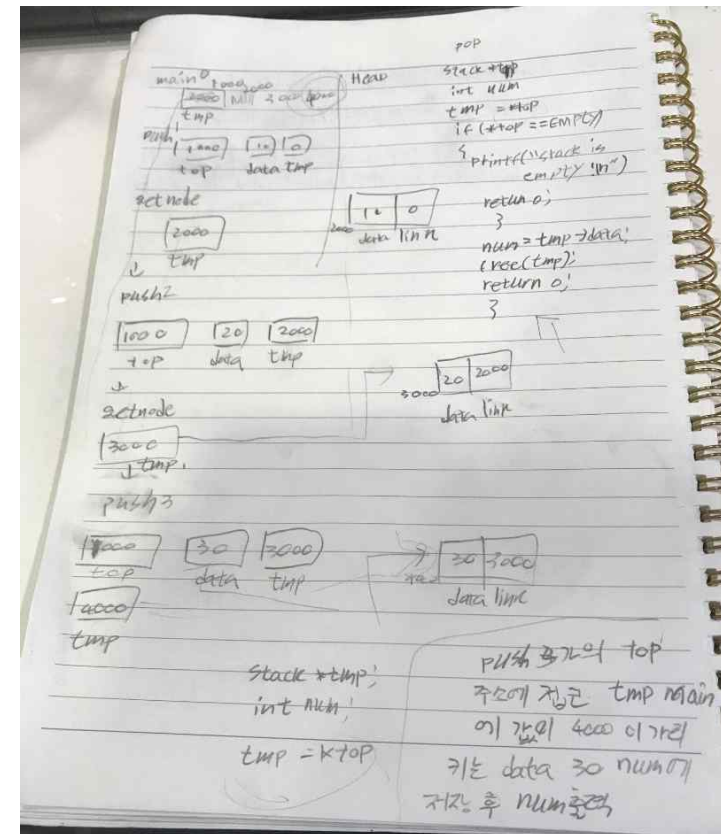 main
1000
2000 Nil 3000 4000
tmp
Heap
push1
1000 10 0
top data tmp
getnode
2000
tmp
2000 10 0
data link
push2
1000 20 2000
top data tmp
getnode
3000
tmp
3000 20 2000
data link
push3
1000 30 3000
top data tmp
4000
tmp
30 3000
data link
stack *tmp;
int num;
tmp = *top
pop
stack *top
int num
tmp = *top
if (*top == EMPTY)
{ printf("stack is
empty !\n")
return 0;
}
num = tmp->data;
free(tmp);
return 0;
}
push 3개의 top
주소에 접근 tmp main
에 값이 4000이 가리
키는 data 30 num에
저장 후 num출력